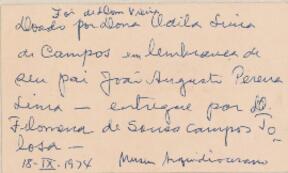 Foi de Dom Vieira
Doado por Dona Udila Lima
de Campos em lembrança de
seu pai João Augusto Pereira
Lima — entregue por D.
Filomena de Sousa Campos To
losa —
18-IX-1974 Museu Arquidiocesano